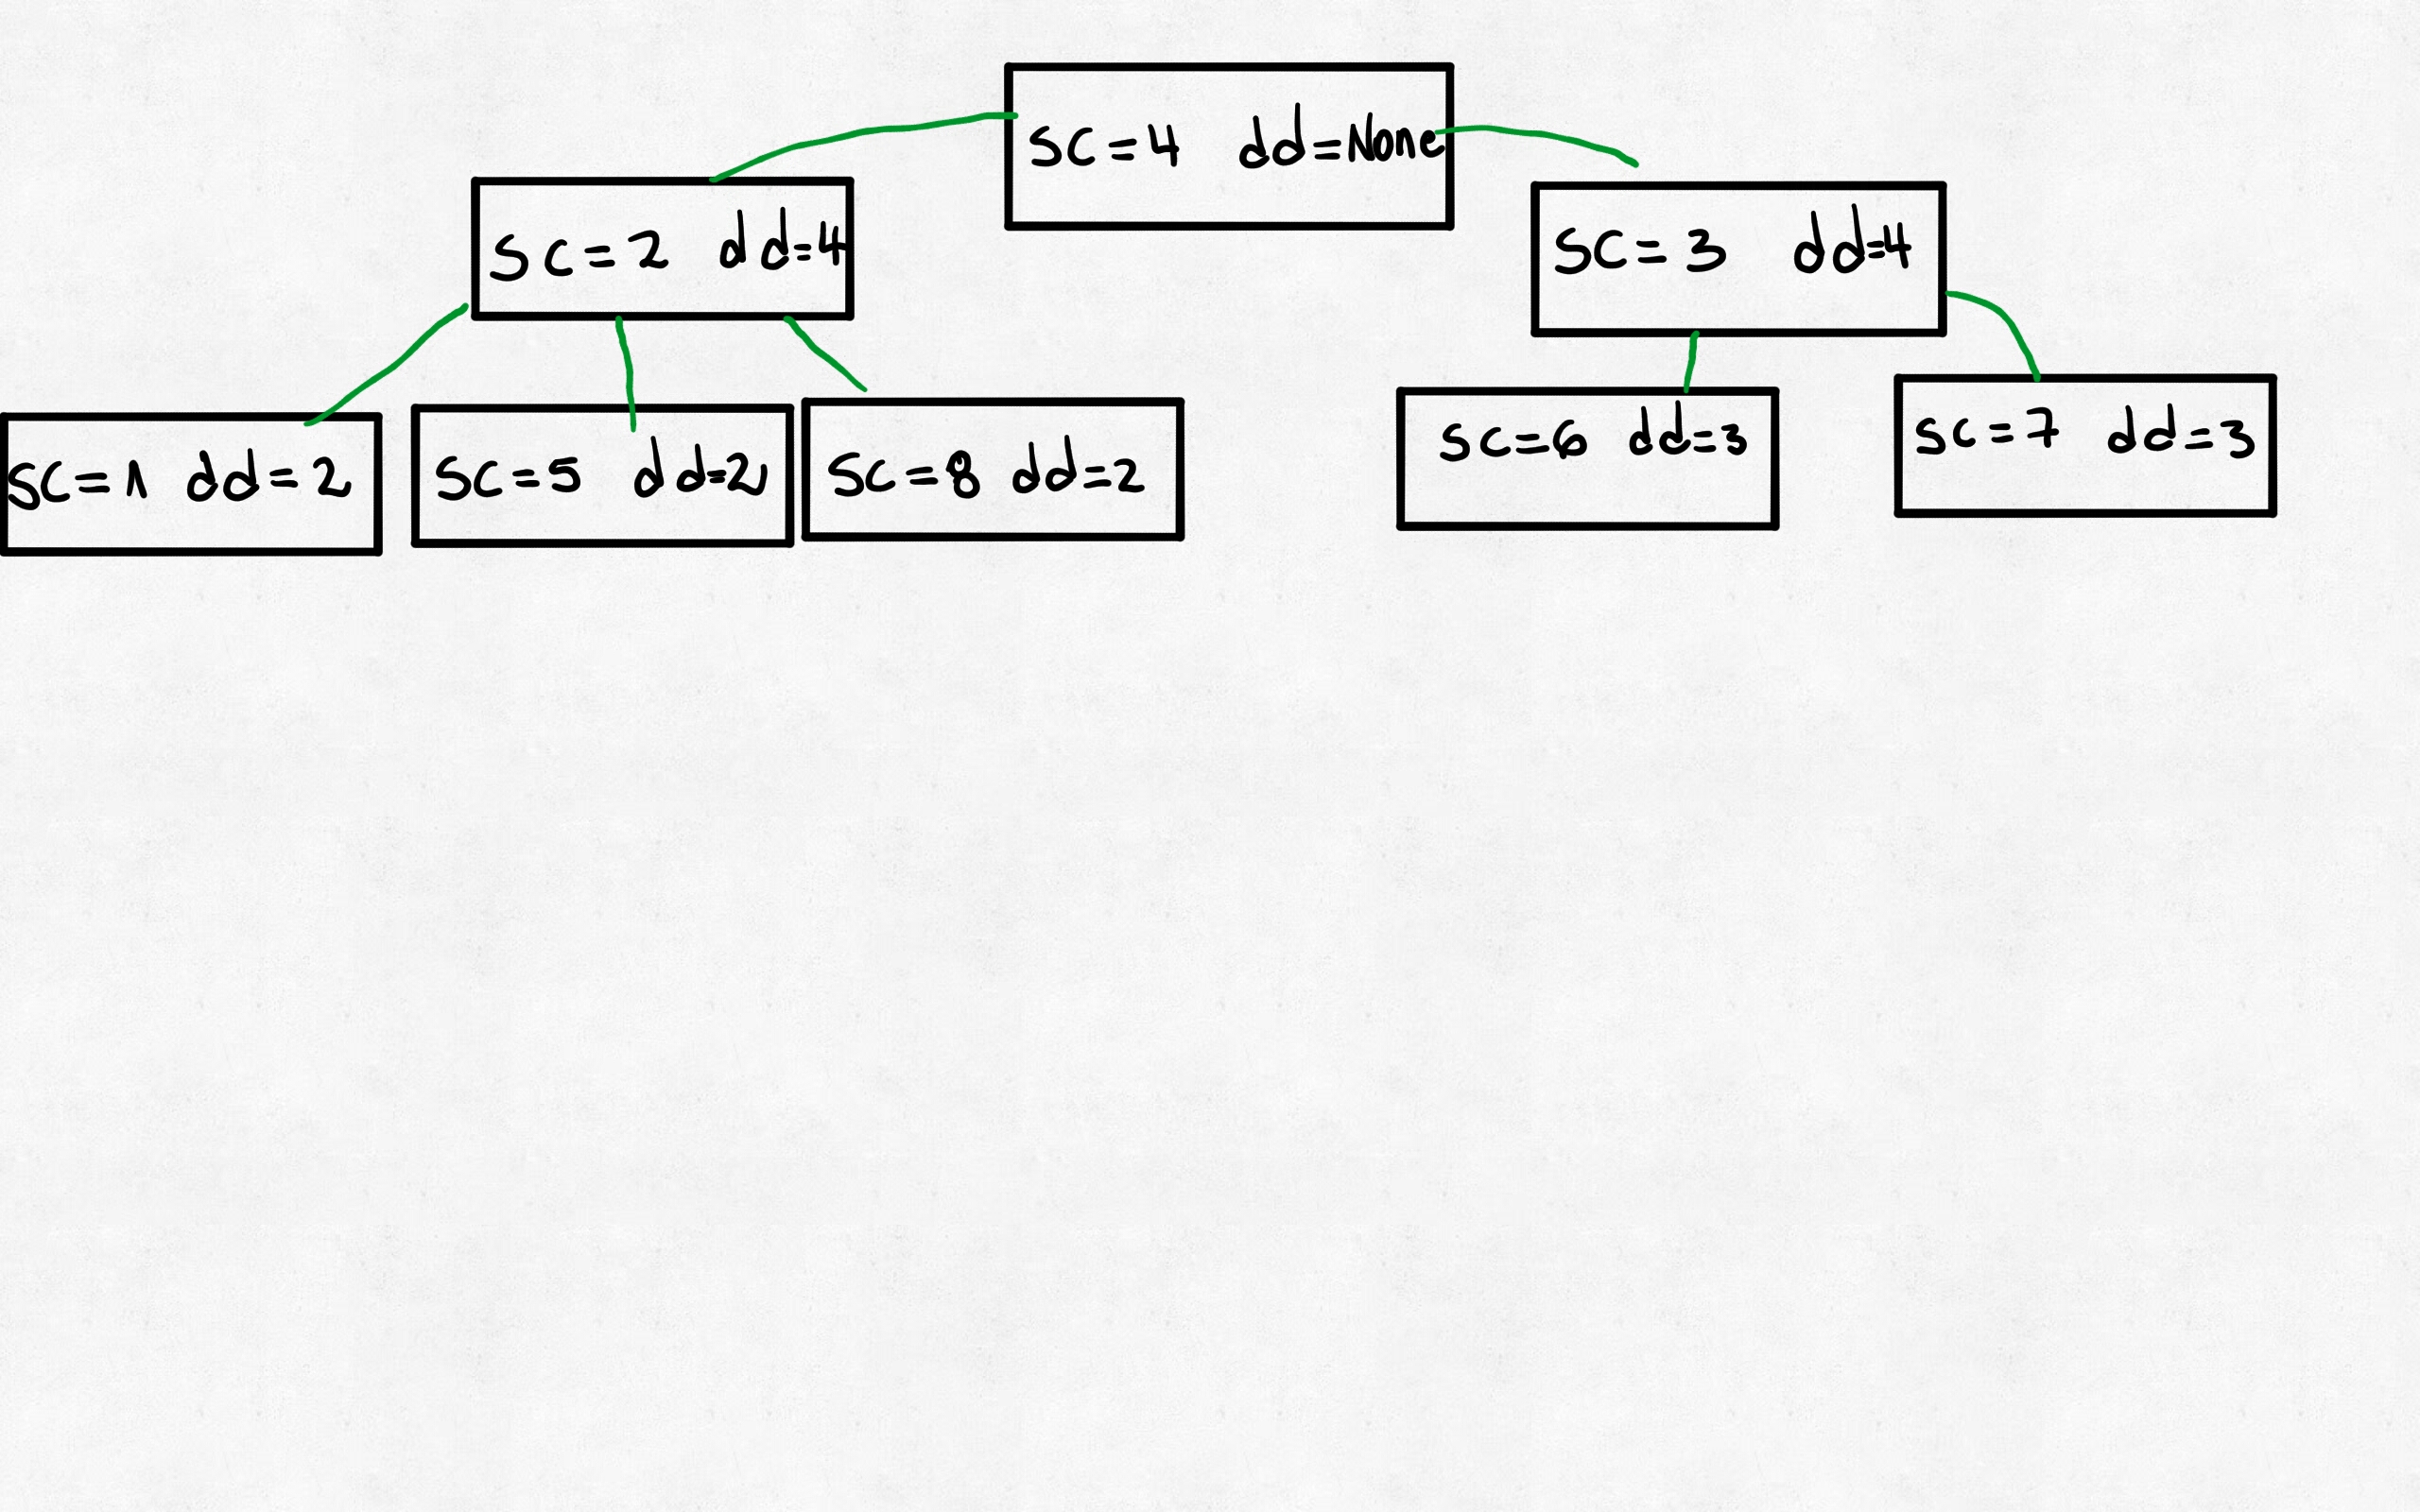 sc=4 dd=None
sc=2 dd=4
sc=3 dd=4
sc=1 dd=2
sc=5 dd=2
sc=8 dd=2
sc=6 dd=3
sc=7 dd=3